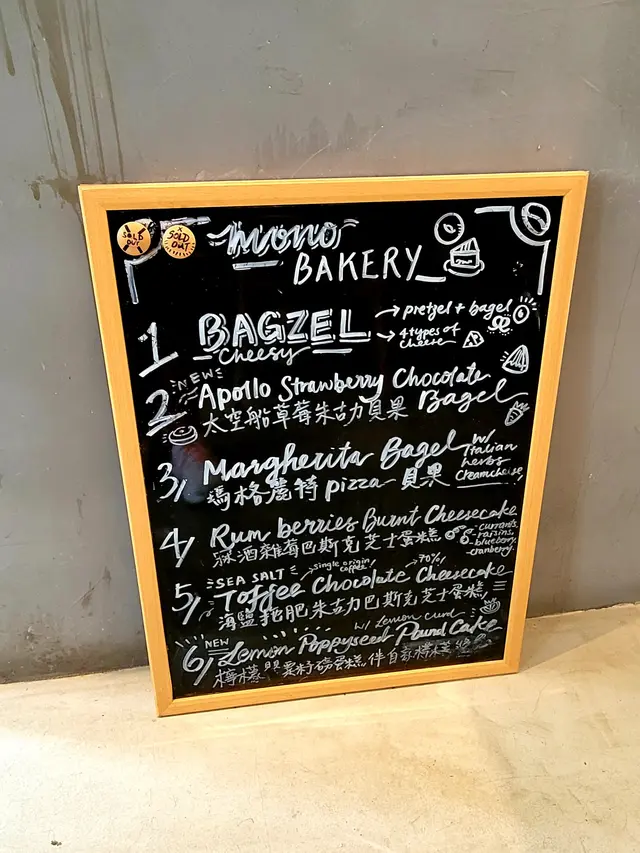 SOLD OUT
SOLD OUT
mono
BAKERY
1 BAGZEL → pretzel + bagel
Cheesy → 4 types of cheese
NEW
2 Apollo Strawberry Chocolate Bagel
太空船草莓朱古力貝果
3 Margherita Bagel w/ Italian herbs creamcheese
瑪格麗特 pizza 貝果
4 Rum berries Burnt Cheesecake
酒雜莓巴斯克芝士蛋糕
currants, raisins, blueberry, cranberry.
SEA SALT single origin coffee 70%
5 Toffee Chocolate Cheesecake
海鹽拖肥朱古力巴斯克芝士蛋糕
NEW w/ Lemon curd
6 Lemon Poppyseed Pound Cake
檸檬 罌粟籽磅蛋糕 伴自家檸檬